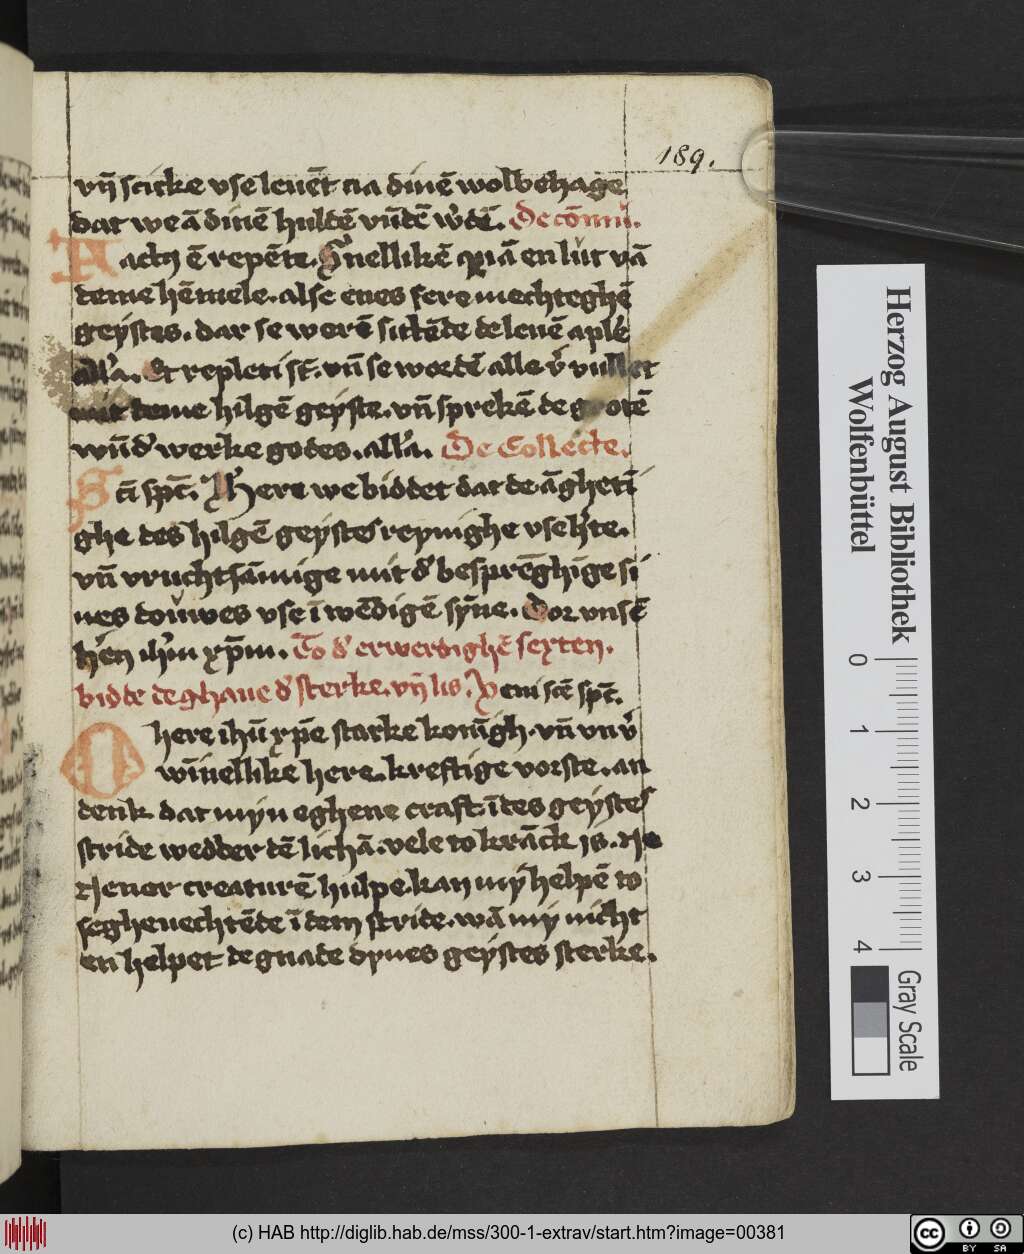 189.
vn̄ scicke vse leuēt na dinē wolbehage,
dat we ā dinē huldē vūdē w'dē. De cōmū.
Factꝫ ē repēte. Snellikē q̄ā en lůt vā
deme hēmele. alse enes sere mechteghē
geystes. dar se werē sittēde de leuē aple'
all'a. Et repleti st̄. vn̄ se wordē alle v' vullet
mit deme hilgē geyste. vn̄ sprekē de grotē
wūd' werke godes. all'a. De Collecte.
Sc̄i spc̄. Here we biddet dat de āghetī
ghe des hilgē geystes reynighe vse h'te.
vn̄ vruchtsāmige mit d' besprēghīge si
nes douwes vse ī wēdigē sȳne. Dor vnsē
hēn ih'm xp̄m. To d' erwerdighē sexten.
bidde de ghaue d' sterke. vn̄ lis. Veni scē spc̄.
O here ihū xp̄e starke konīgh. vn̄ vnv'
wīnellike here. kreftige vorste. an
denk dat myn eghene craft ī des geystes
stride wedder dē lichā. vele to krāck is. Ne
nener creaturē hulpe kan my helpē to
seghenechtēde ī dem stride. wā my nicht
en helpet de gnade dynes geystes sterke.
Herzog August Bibliothek
Wolfenbüttel
0
1
2
3
4
Gray Scale
(c) HAB http://diglib.hab.de/mss/300-1-extrav/start.htm?image=00381
cc BY SA